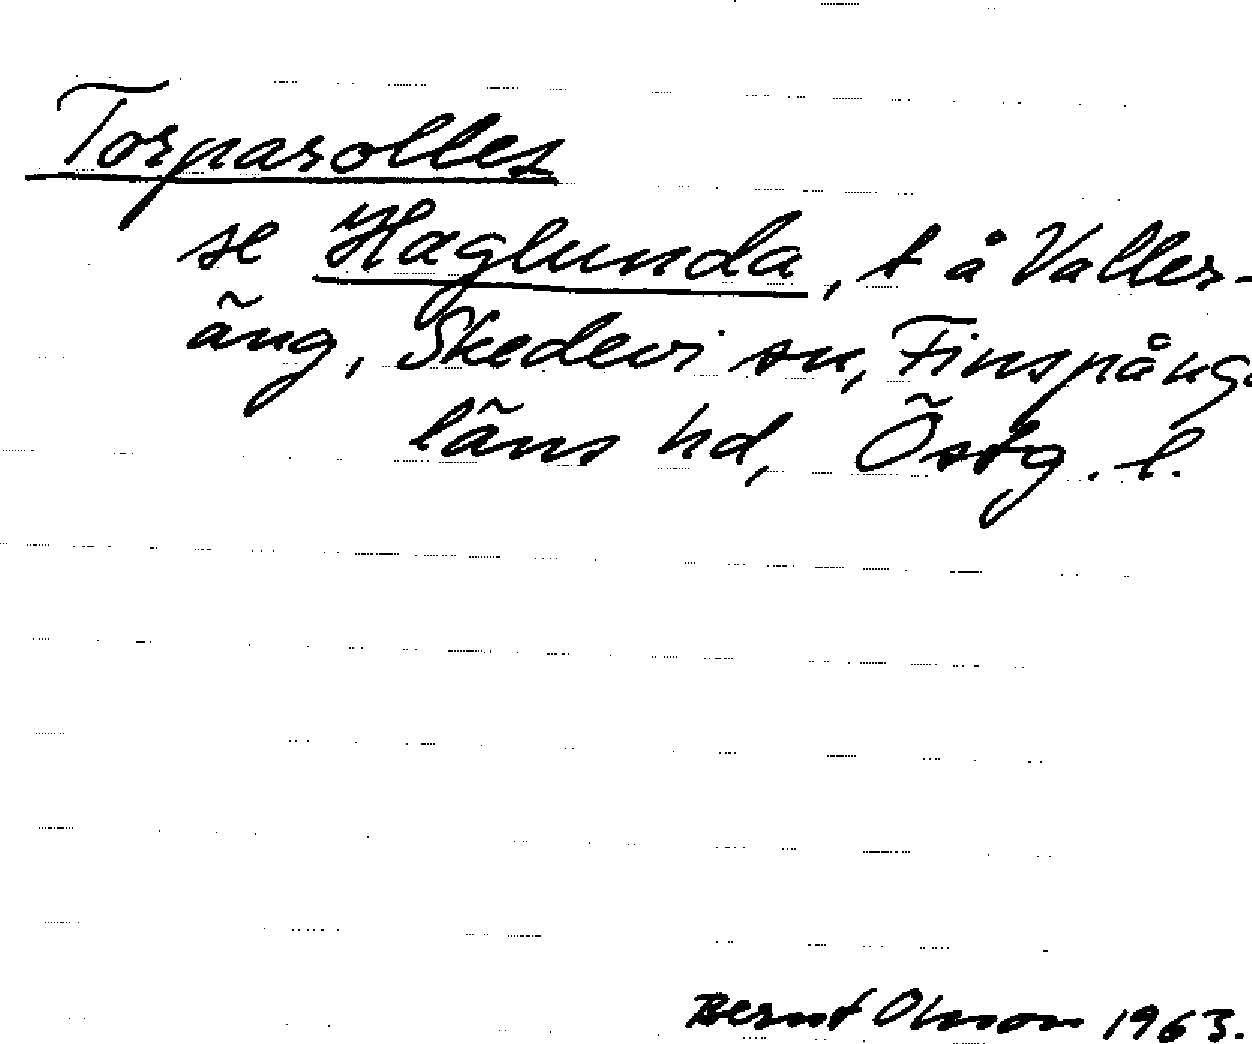 Torparolles
se Haglunda, t å Valler-
äng, Skedevi sn, Finspång.
läns hd, Östg. l.
Bernt Olsson 1963.